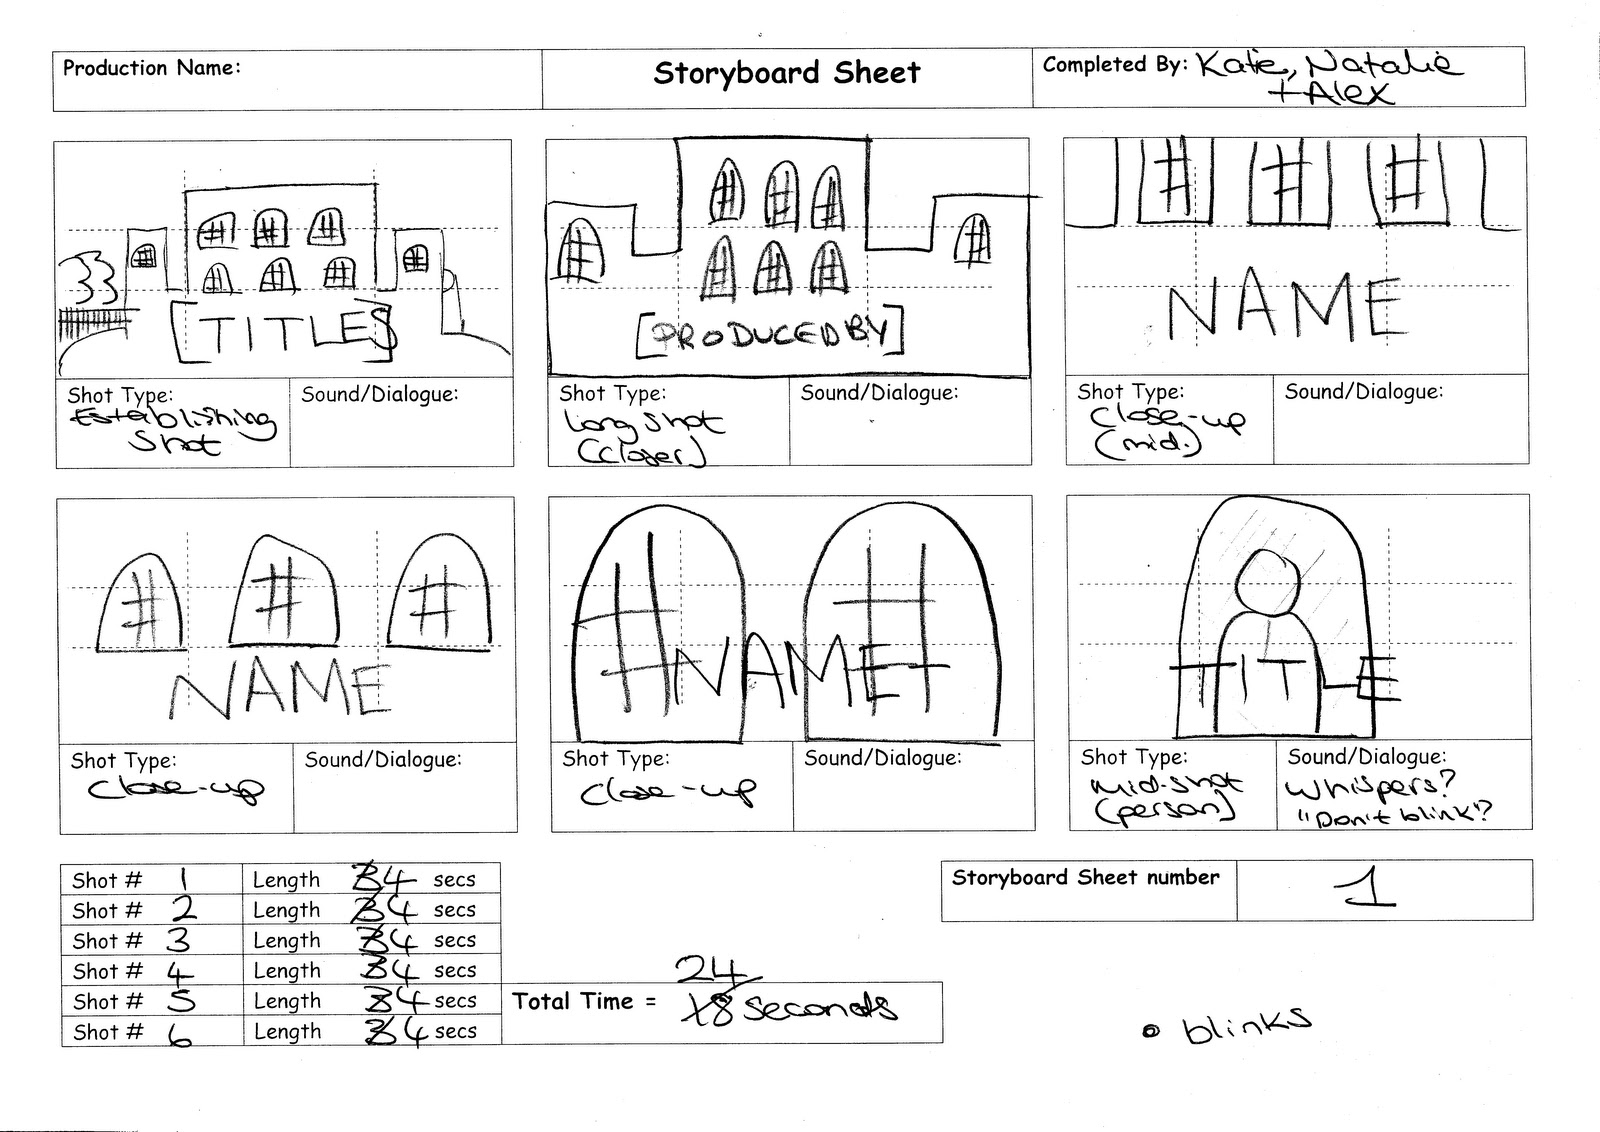 Production Name:
Storyboard Sheet
Completed By: Katie, Natalie
+ Alex
[TITLES]
[PRODUCED BY]
NAME
Shot Type:
Establishing
Shot
Sound/Dialogue:
Shot Type:
Long Shot
(Closer)
Sound/Dialogue:
Shot Type:
Close-up
(mid.)
Sound/Dialogue:
NAME
NAME
TITLE
Shot Type:
Close-up
Sound/Dialogue:
Shot Type:
Close-up
Sound/Dialogue:
Shot Type:
Mid-shot
(person)
Sound/Dialogue:
Whispers?
"Don't blink"?
Shot # 1 Length 3 4 secs
Shot # 2 Length 3 4 secs
Shot # 3 Length 3 4 secs
Shot # 4 Length 3 4 secs
Shot # 5 Length 3 4 secs
Shot # 6 Length 3 4 secs
24
Total Time = 18 seconds
Storyboard Sheet number 1
blinks